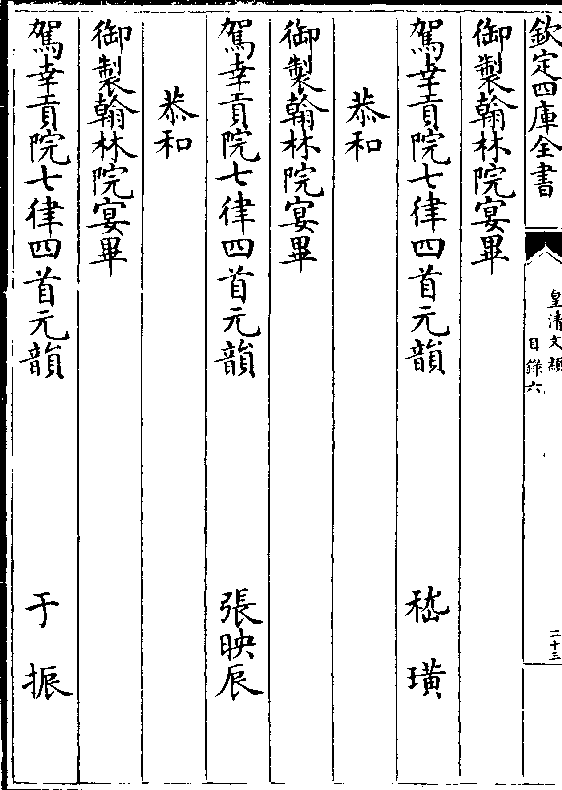 欽定四庫全書
皇清文類
目錄六
二十三
御製翰林院宴畢
駕幸貢院七律四首元韻 嵇璜
恭和
御製翰林院宴畢
駕幸貢院七律四首元韻 張映辰
恭和
御製翰林院宴畢
駕幸貢院七律四首元韻 于振